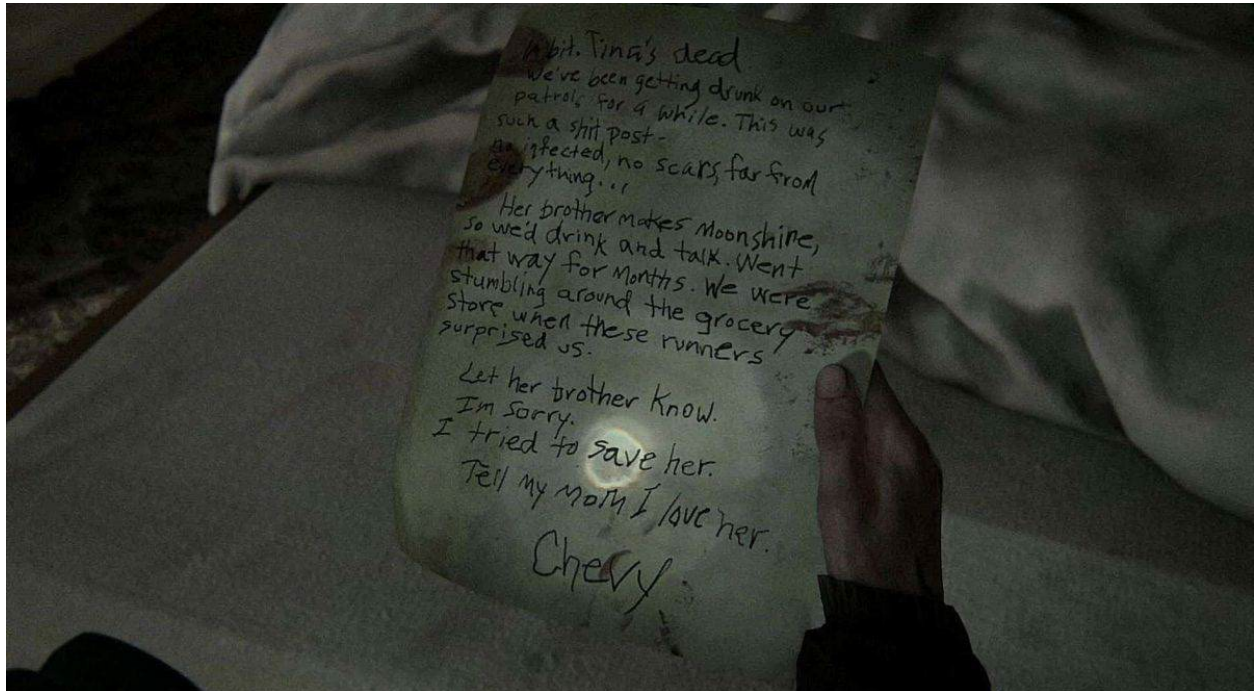 I'm bit. Tina's dead
We've been getting drunk on our
patrols for a while. This was
such a shit post-
no infected, no scars, far from
everything...
Her brother makes Moonshine,
so we'd drink and talk. Went
that way for Months. We were
stumbling around the grocery
store when these runners
surprised us.
Let her brother know.
Im sorry.
I tried to save her.
Tell my mom I love her.
Chevy